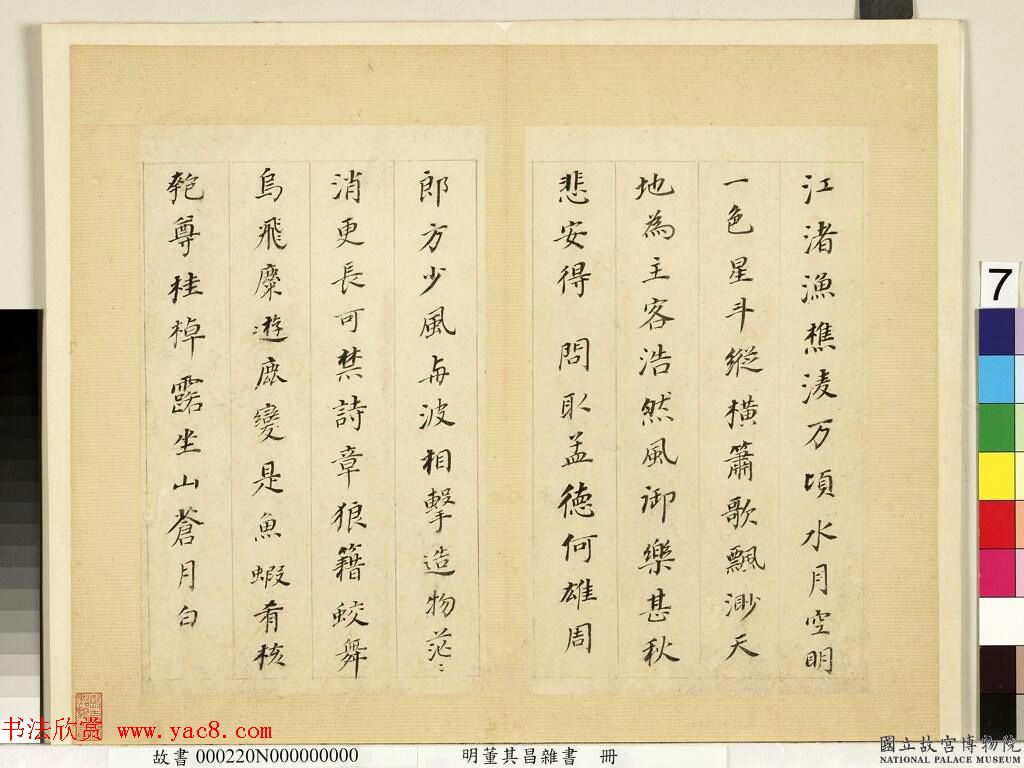 江渚漁樵淩万頃水月空明
一色星斗縱橫簫歌飄渺天
地為主客浩然風御樂甚秋
悲安得 問取孟德何雄周
郎方少風与波相擊造物茫〻
消更長可禁詩章狼籍蛟舞
烏飛麋遊鹿變是魚蝦肴核
匏尊桂棹露坐山蒼月白
7
书法欣赏 www.yac8.com
故書 000220N000000000
明董其昌雜書 冊
國立故宮博物院
NATIONAL PALACE MUSEUM